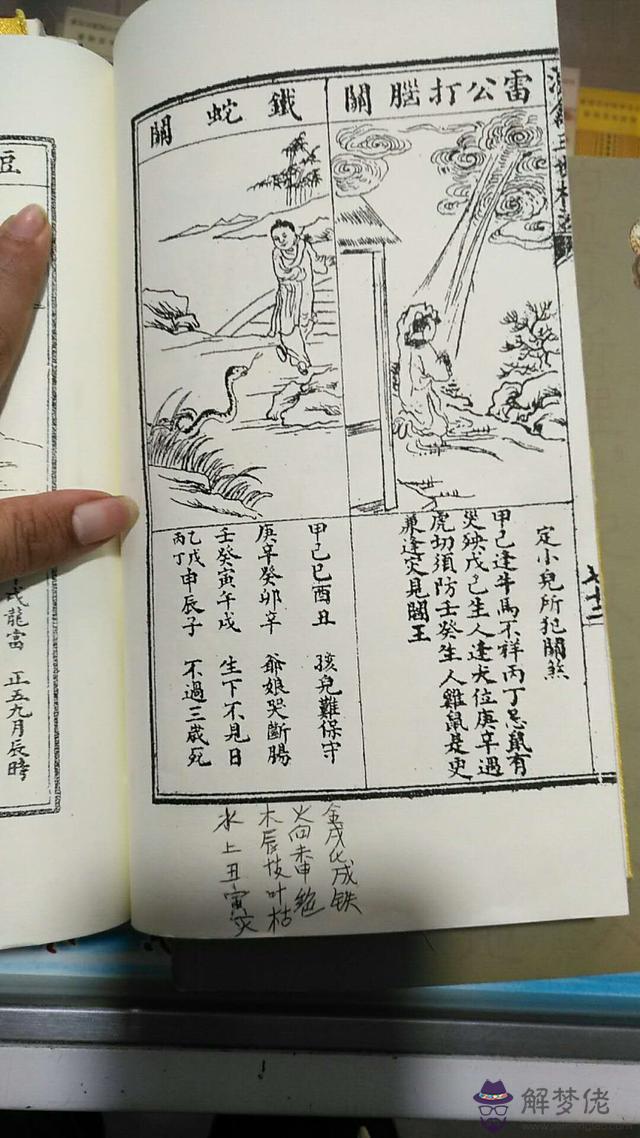 雷公打腦關
定小兒所犯關煞
甲己逢牛馬不祥丙丁忌鼠有
災殃戊己生人逢犬位庚辛遇
虎切須防壬癸生人雞鼠是更
兼逢灾見閻王
鐵蛇關
甲己巳酉丑 孩兒難保守
庚辛癸卯辛 爺娘哭斷腸
壬癸寅午戌 生下不見日
乙戊申辰子 不過三歲死
丙丁
七十二
金戌化成铁
火向未申絕
木辰枝叶枯
水上丑寅灾
戌龍當 正五九月辰時
解梦佬